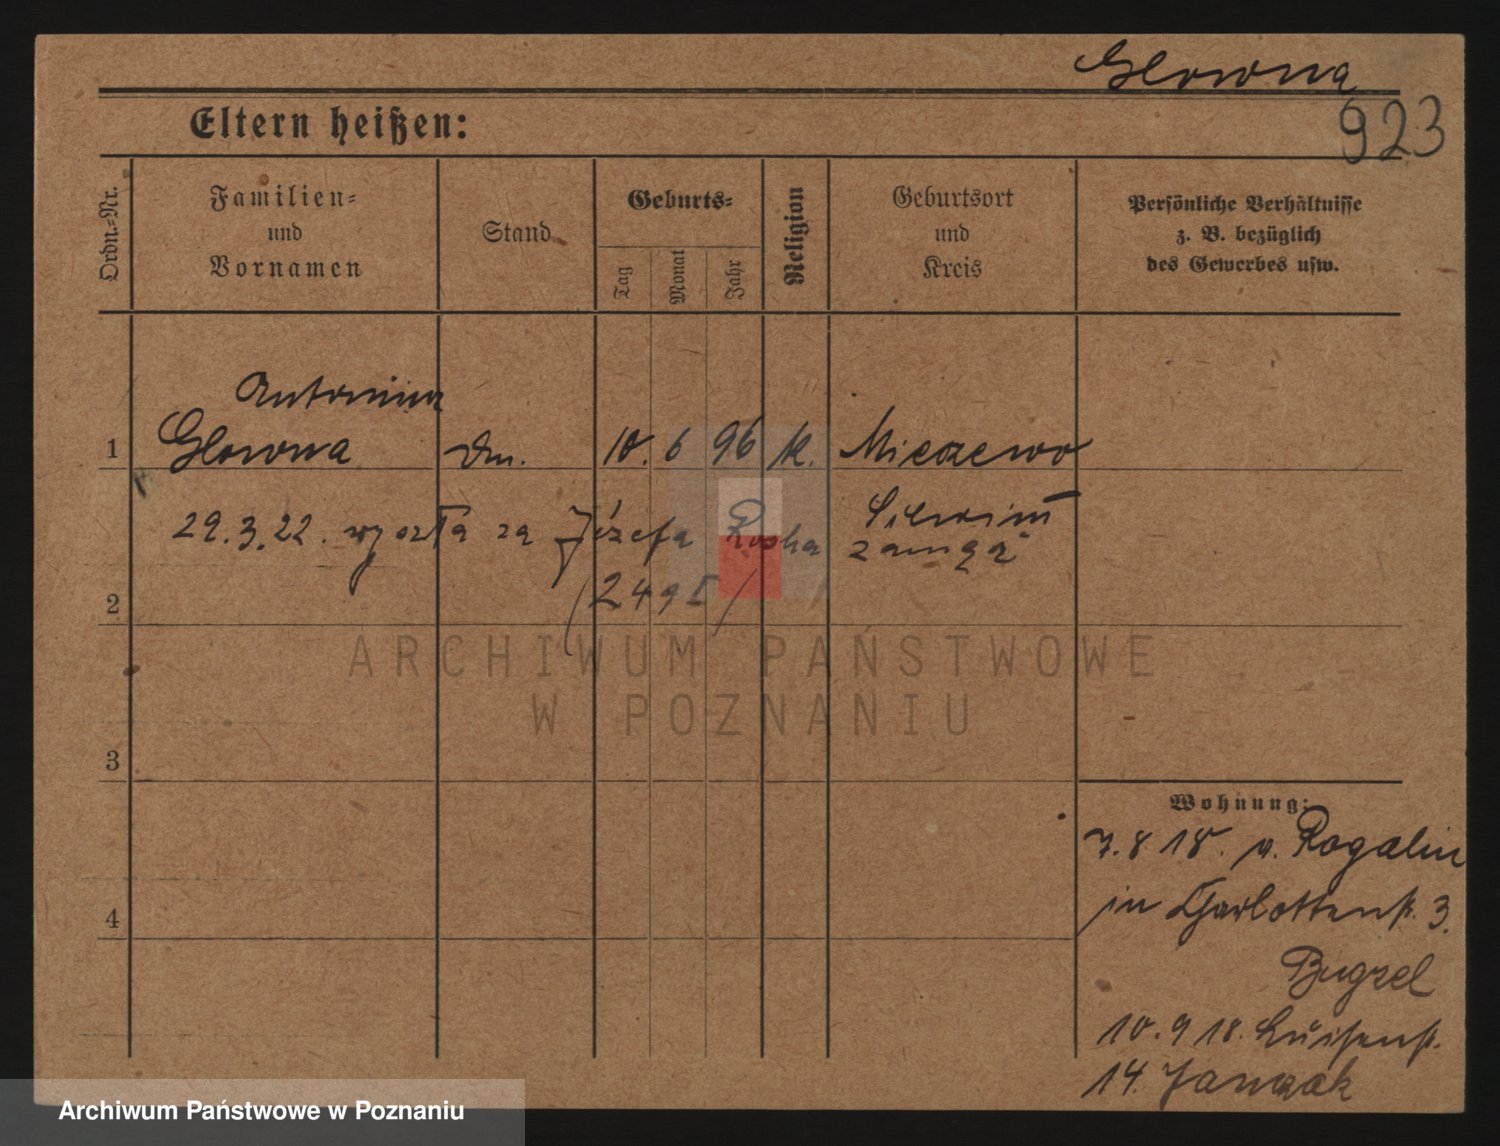 Glowna
923
Eltern heißen:
Ordn.-Nr.
Familien-
und
Vornamen
Stand
Geburts-
Tag
Monat
Jahr
Religion
Geburtsort
und
Kreis
Persönliche Verhältnisse
z. B. bezüglich
des Gewerbes usw.
Antonina
1 Glowna 10. 6 96 k. Mieczewo
29.3.22. wyszła za Józefa
(2495)
2
3
4
ARCHIWUM PAŃSTWOWE
W POZNANIU
Wohnung:
7.8 18. v. Rogalin
in Charlottenstr. 3.
10.9 18. Luisenstr.
14. Janczak
Archiwum Państwowe w Poznaniu